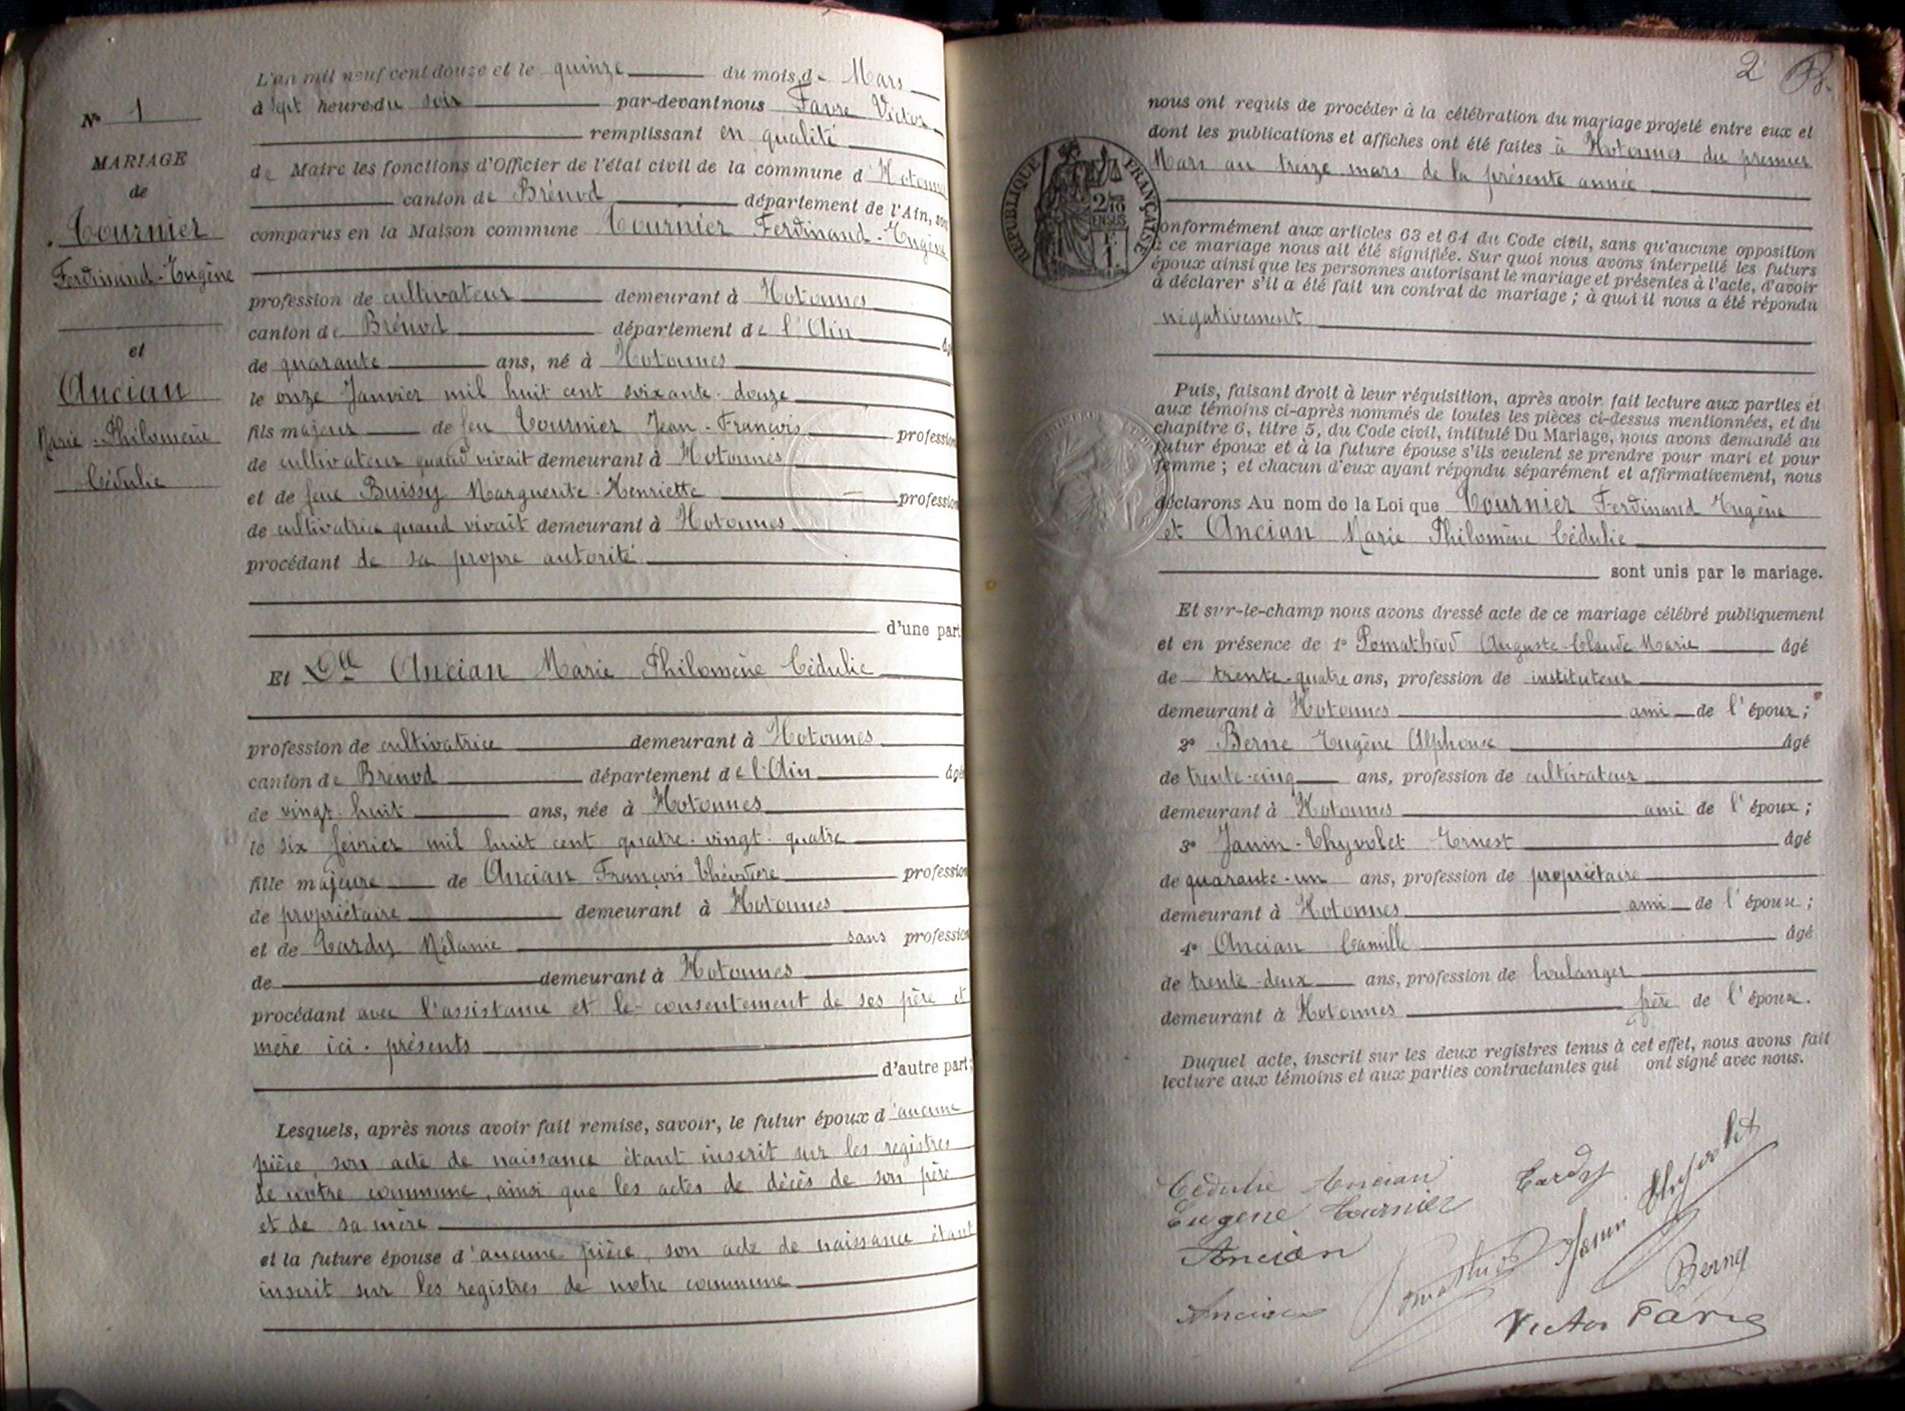 L'an mil neuf cent douze et le quinze du mois de Mars
à sept heure du soir par-devant nous Favre Victor
remplissant en qualité
de Maire les fonctions d'Officier de l'état civil de la commune d'Hotonnes
canton de Brénod département de l'Ain, sont
comparus en la Maison commune Tournier Ferdinand-Eugène
profession de cultivateur demeurant à Hotonnes
canton de Brénod département de l'Ain âgé
de quarante ans, né à Hotonnes
le onze Janvier mil huit cent soixante-douze
fils majeur de feu Tournier Jean-François profession
de cultivateur quand vivait demeurant à Hotonnes
et de feue Buissy Marguerite-Henriette profession
de cultivatrice quand vivait demeurant à Hotonnes
procédant de sa propre autorité
d'une part
Et Dlle Ancian Marie Philomène Cédulie
profession de cultivatrice demeurant à Hotonnes
canton de Brénod département de l'Ain âgé
de vingt-huit ans, née à Hotonnes
le six février mil huit cent quatre-vingt-quatre
fille majeure de Ancian François Théodore profession
de propriétaire demeurant à Hotonnes
et de Tardy Mélanie sans profession
de demeurant à Hotonnes
procédant avec l'assistance et le consentement de ses père et
mère ici-présents
d'autre part;
Lesquels, après nous avoir fait remise, savoir, le futur époux d'aucune
pièce, son acte de naissance étant inscrit sur les registres
de notre commune, ainsi que les actes de décès de son père
et de sa mère
et la future épouse d'aucune pièce, son acte de naissance étant
inscrit sur les registres de notre commune
No 1
MARIAGE
de
Tournier
Ferdinand-Eugène
et
Ancian
Marie-Philomène
Cédulie
2
nous ont requis de procéder à la célébration du mariage projeté entre eux et
dont les publications et affiches ont été faites à Hotonnes du premier
Mars au treize mars de la présente année
conformément aux articles 63 et 64 du Code civil, sans qu'aucune opposition
à ce mariage nous ait été signifiée. Sur quoi nous avons interpellé les futurs
époux ainsi que les personnes autorisant le mariage et présentes à l'acte, d'avoir
à déclarer s'il a été fait un contrat de mariage; à quoi il nous a été répondu
négativement
Puis, faisant droit à leur réquisition, après avoir fait lecture aux parties et
aux témoins ci-après nommés de toutes les pièces ci-dessus mentionnées, et du
chapitre 6, titre 5, du Code civil, intitulé Du Mariage, nous avons demandé au
futur époux et à la future épouse s'ils veulent se prendre pour mari et pour
femme; et chacun d'eux ayant répondu séparément et affirmativement, nous
déclarons Au nom de la Loi que Tournier Ferdinand Eugène
et Ancian Marie Philomène Cédulie
sont unis par le mariage.
Et sur-le-champ nous avons dressé acte de ce mariage célébré publiquement
et en présence de 1o Pomathiod Auguste Claude Marie âgé
de trente-quatre ans, profession de instituteur
demeurant à Hotonnes ami de l'époux;
2o Berne Eugène Alphonse âgé
de trente-cinq ans, profession de cultivateur
demeurant à Hotonnes ami de l'époux;
3o Janin-Thyvolet Ernest âgé
de quarante-un ans, profession de propriétaire
demeurant à Hotonnes ami de l'épouse;
4o Ancian Camille âgé
de trente-deux ans, profession de boulanger
demeurant à Hotonnes frère de l'épouse.
Duquel acte, inscrit sur les deux registres tenus à cet effet, nous avons fait
lecture aux témoins et aux parties contractantes qui ont signé avec nous.
Cédulie Ancian Tardy
Eugène Tournier
Ancian
Pomathiod Janin Thyvolet
Ancian
Berne
Victor Favre
RÉPUBLIQUE FRANÇAISE